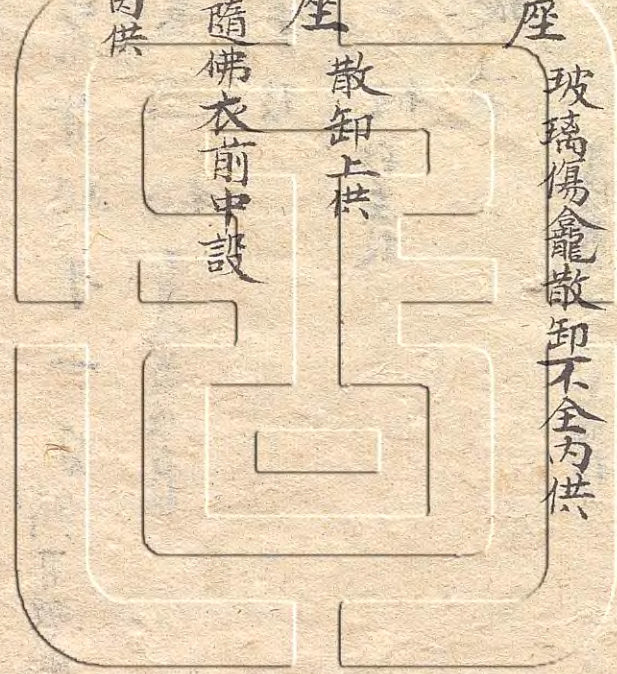 座
玻璃傷龕散卸不全內供
座
散卸上供
隨佛衣前中設
內供